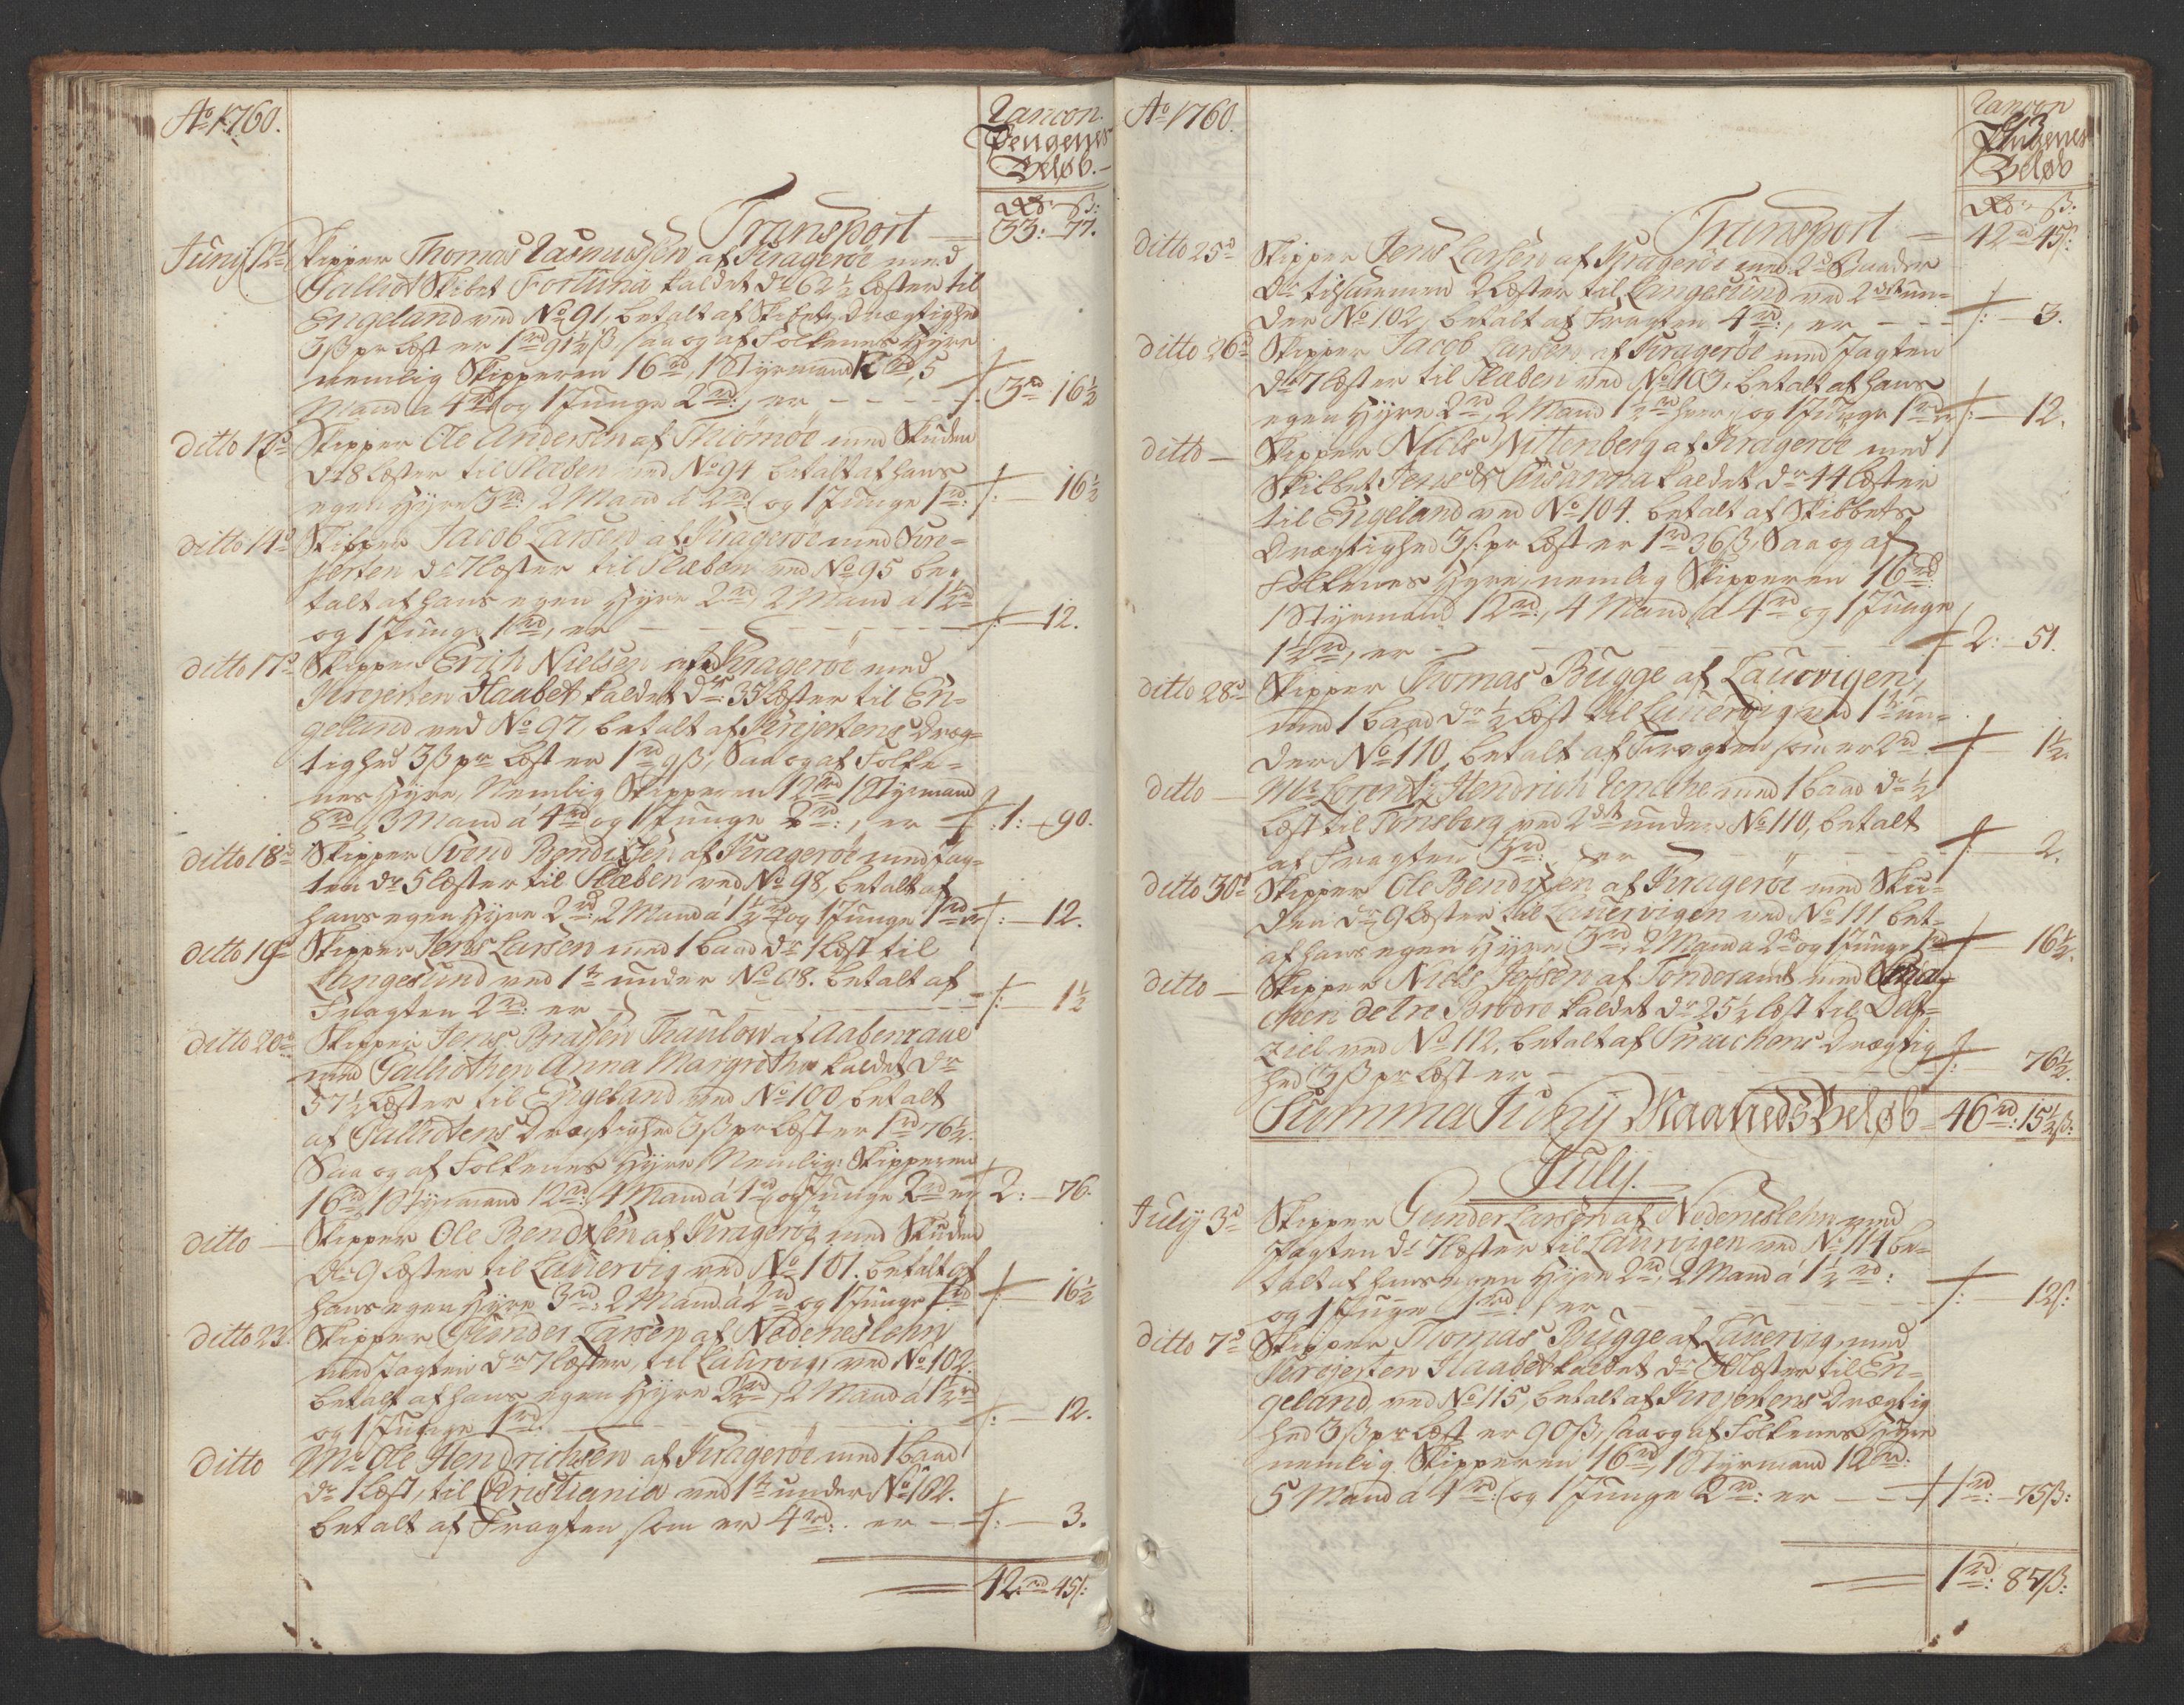 Ao 1760.
Rancon
Pengenes
Beløb.
Rd: ß:
Transport — 33: 77.
Juny 12d Skipper Thomas Rasmussen af Kragerøe med
Galliot Skibet Fortuna kaldet dr 62½ Læster til
Engeland ved No 91, betalt af Skibets Drægtighed
3ß pr Læst er 1rd 91½ß, saa og af Folkenes Hyre
nemlig Skipperen 16rd, 1 Styrmand 12rd, 5
Mand a 4rd og 1 Junge 2rd:, er - - - - 3rd 16½
ditto 13d Skipper Ole Andersen af Thiømøe med Skuden
dr 8 Læster til Slæben ved No 94 betalt af hans
egen Hyre 3rd, 2 Mand á 2rd: og 1 Junge 1rd: — 16½
ditto 14d Skipper Jacob Larsen af Kragerøe med Kre-
jerten dr 7 Læster til Slæben ved No 95 be-
talt af hans egen Hyre 2rd, 2 Mand a 1½rd
og 1 Junge 1rd, er — — — 12.
ditto 17d Skipper Erich Nielsen af Kragerøe med
Krejerten Haabet kaldet dr 35 Læster til En-
geland ved No 97, betalt af Krejertens Dræg-
tighed 3ß pr Læst er 1rd 9ß, Saa og af Folke-
nes Hyre, Nemlig Skipperen 12rd 1 Styrmand
8rd, 3 Mand á 4rd og 1 Junge 2rd:, er — 1: 90.
ditto 18d Skipper Svend Bendixen af Kragerøe med Jag-
ten dr 5 Læster til Slæben ved No 98, betalt af
hans egen Hyre 2rd:, 2 Mand á 1½rd og 1 Junge 1rd er — 12.
ditto 19d Skipper Jens Larsen med 1 Baad dr 1 Læst til
Langesund ved 1te under No 68. betalt af
Fragten 2rd: er — — — 1½
ditto 20d Skipper Jens Brasen Thaulow af Aabenraae
med Galliothen Anna Margretha kaldet dr
57½ Læster til Engeland ved No 100, betalt
af Galliotens Drægtighed 3ß pr Læst er 1rd 76½.
Saa og af Folkenes Hyre, Nemlig: Skipperen
16rd, 1 Styrmand 12rd:, 4 Mand á 4rd og 1 Junge 2rd er 2: 76.
ditto — Skipper Ole Bendixen af Kragerøe med Skuden
dr 9 Læster til Lauervig ved No 101. betalt af
hans egen Hyre 3rd:, 2 Mand á 2rd og 1 Junge 1rd — 16½
ditto 23. Skipper Gunder Larsen af Nedeneslehn
med Jagten dr 7 Læster, til Laurvig, ved No 102.
betalt af hans egen Hyre 2rd, 2 Mand á 1½rd
og 1 Junge 1rd. — — — 12.
ditto Mr Ole Hendrichsen af Kragerøe med 1 Baad
dr 1 Læst, til Christiania ved 1te under No 102.
betalt af Fragten som er 4rd:. er — — 3.
42.rd 45ß:
Ao 1760.
Rancon
Pengenes
Beløb
Rd: ß:
Transport — 42rd 45ß:
ditto 25d Skipper Jens Larsen af Kragerøe med 2de Baader
dr tilsammen 2 Læster til Langesund ved 2det un-
der No 102, betalt af Fragten 4rd:, er - - - 3.
ditto 26d Skipper Jacob Larsen af Kragerøe med Jagten
dr 7 Læster til Slæben ved No 103. betalt af hans
egen Hyre 2rd, 2 Mand 1½rd hver, og 1 Junge 1rd er — 12.
ditto — Skipper Niels Wittenberg af Kragerøe med
Skibbet Jens & Susanna kaldet dr 44 Læster
til Engeland ved No 104. betalt af Skibbets
Drægtighed 3ß: pr Læst er 1rd 36ß, Saa og af
Folkenes Hyre, nemlig Skipperen 16rd:
1 Styrmand 12rd:, 4 Mand á 4rd og 1 Junge
1½rd, er — — — 2: 51.
ditto 28d Skipper Thomas Bugge af Laurvigen,
med 1 Baad dr ½ Læst til Lauervig ved 1te un-
der No 110, betalt af Fragten som er 2rd — 1½.
ditto — Mr Lorentz Hendrich med 1 Baad dr ½
Læst til Tønsberg ved 2det under No 110, betalt
af Fragten 3rd:, er — — — 2.
ditto 30d Skipper Ole Bendixen af Kragerøe med Sku-
den dr 9 Læster til Lauervigen ved No 111 bet.
af hans egen Hyre 3rd, 2 Mand a 2rd og 1 Junge 1rd — 16½.
ditto — Skipper Niels Jessen af Tønderamt med Smac-
chen de tre Brødre kaldet dr 25½ Læst til Delf-
ziel ved No 112, betalt af Smackens Drægtig-
hed 3ß pr Læst er — — — 76½.
Summa Juny Maaneds Beløb — 46rd: 15½ß:
July.
July 3d Skipper Gunder Larsen af Nedeneslehn med
Jagten dr 7 Læster til Laurvigen ved No 114 be-
talt af hans egen Hyre 2rd, 2 Mand á 1½rd:
og 1 Junge 1rd: er — — — 12ß:
ditto 7d Skipper Thomas Bugge af Lauervig med
Krejerten Haabet kaldet dr Læster til En-
geland, ved No 115, betalt af Krejertens Drægtig
hed 3ß pr Læst er 90ß, saa og af Folkenes Hyre
nemlig Skipperen 16rd, 1 Styrmand 12rd:
5 Mand á 4rd: og 1 Junge 2rd: er — — 1rd: 75ß:
1rd: 87ß: